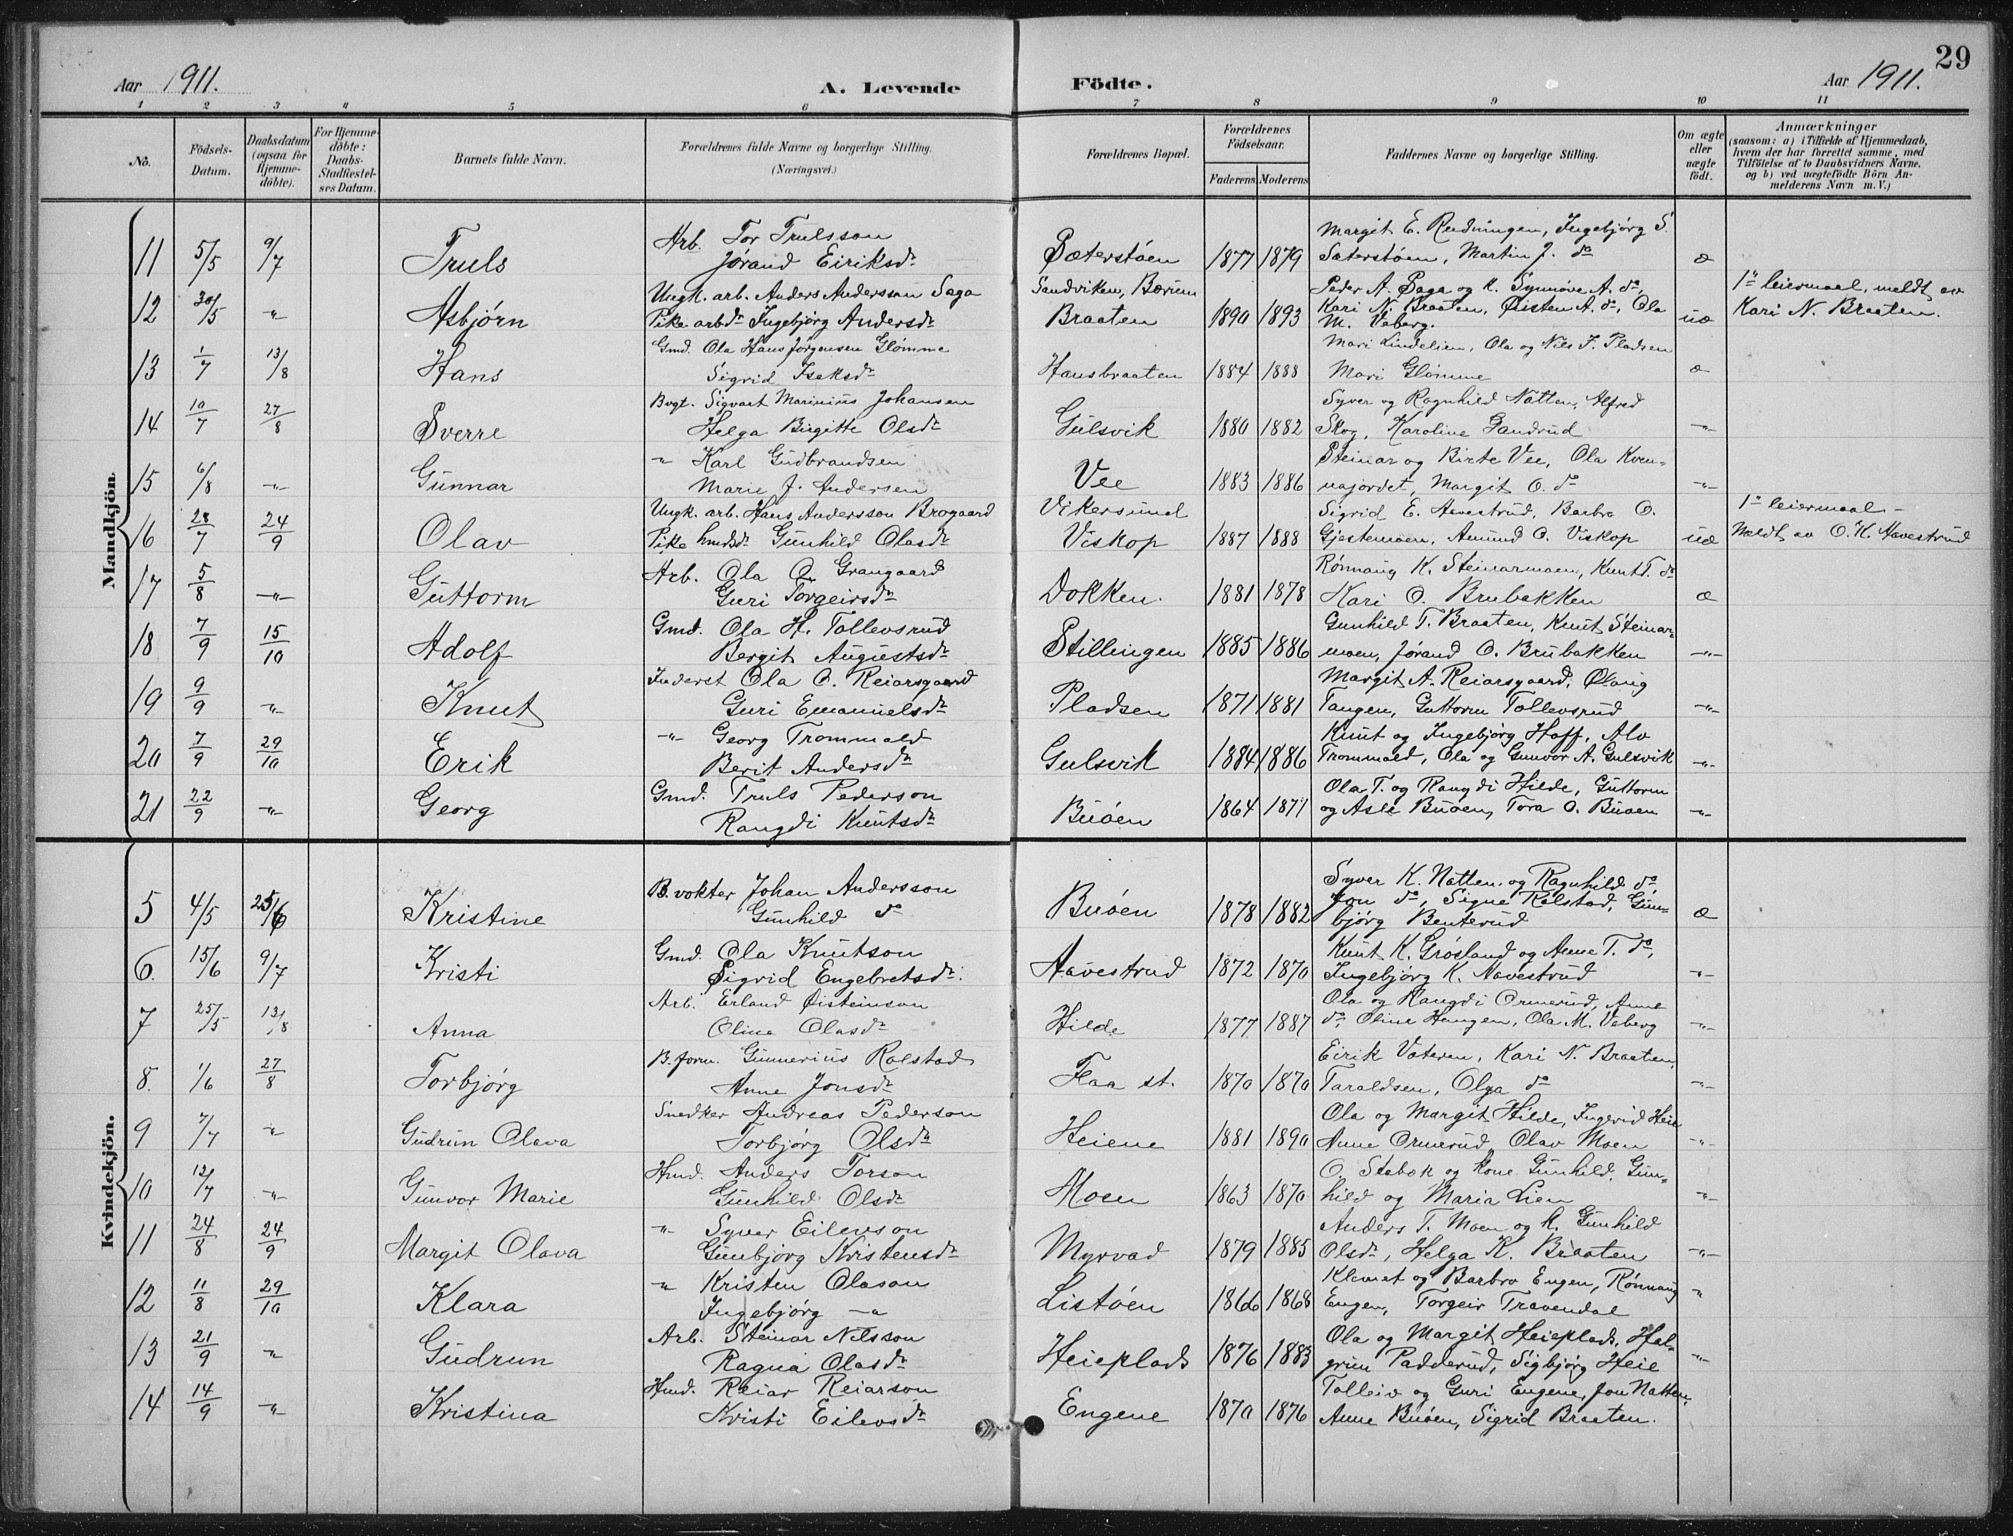 29
Aar 1911. A. Levende Födte. Aar 1911.
1 2 3 4 5 6 7 8 9 10 11
No. Födsels-Datum. Daabsdatum (ogsaa for Hjemmedöbte). For Hjemmedöbte: Daabs-Stadfæstelses Datum. Barnets fulde Navn. Forældrenes fulde Navne og borgerlige Stilling. (Næringsvei.) Forældrenes Bopæl. Forældrenes Födselsaar. Faderens Moderens Faddernes Navne og borgerlige Stilling. Om ægte eller uægte födt. Anmærkninger (saasom: a) i Tilfælde af Hjemmedaab, hvem der har forrettet samme, med Tilföielse af to Daabsvidners Navne, og b) ved uægtefödte Börn Anmelderens Navn m. V.)
Mandkjön.
Arb. Tor Trulsson Margit E. Rudningen, Ingebjørg S.
11 5/5 9/7 Truls Jørand Eiriksdr Sæterstøen 1877 1879 Sæterstøen, Martin J. do æ
Ungk. arb. Anders Andersson Saga Sandviken, Bærum Peder A. Saga og K. Synnøve A. do, 1ste leiermaal, meldt av
12 30/5 " Asbjørn Pike arbdr Ingebjørg Andersdr Braaten 1890 1893 Kari N. Braaten, Øisten A. do, Ola M. Veberg. uæ Kari N. Braaten.
Gmd. Ola Hans Jørgensen Glømme Mari Lindelien, Ola og Nils J. Pladsen
13 1/7 13/8 Hans Sigrid Isaksdr Hansbraaten 1884 1888 Mari Glømme æ
Bvgt. Sigvart Marinius Johansen Syver og Ragnhild Natten, Alfred
14 10/7 27/8 Sverre Helga Birgitte Olsdr Gulsvik 1880 1882 Skog, Karoline Sandrud -"-
" Karl Gudbrandsen Steinar og Birte Vee, Ola Kven-
15 6/8 -"- Gunnar Marie J. Andersen Vee 1883 1886 najordet, Margit O. do -"-
Ungk. arb. Hans Andersson Brogaard Vikersund Sigrid E. Aavestrud, Barbro O. 1ste leiermaal -
16 28/7 24/9 Olav Pike hmdsdr Gunhild Olasdr Viskop 1887 1888 Gjestemoen, Amund O. Viskop uæ Meldt av O. K. Aavestrud
Arb. Ola O. Grangaard Rønnaug K. Steinarmoen, Knut T. do
17 5/8 -"- Guttorm Guri Torgeirsdr Dokken. 1881 1878 Kari O. Brubakken æ
Gmd. Ola H. Tollevsrud Gunhild T. Braaten, Knut Steinar-
18 7/9 15/10 Adolf Bergit Augustsdr Stillingen 1885 1886 moen, Jørand O. Brubakken -"-
Inderst Ola O. Reiarsgaard Margit A. Reiarsgaard, Olaug
19 9/9 -"- Knut Guri Emanuelsdr Pladsen 1871 1881 Tangen, Guttorm Tollevsrud -"-
-"- Georg Trommald Knut og Ingebjørg Hoff, Alv
20 7/9 29/10 Erik Berit Andersdr Gulsvik 1884 1886 Trommald, Ola og Gunvor A. Gulsvik -"-
Gmd. Truls Pederson Ola T. og Rangdi Hilde, Guttorm
21 22/9 -"- Georg Rangdi Knutsdr Buøen 1864 1871 og Asle Buøen, Tora O. Buøen -"-
Kvindekjön.
B.vokter Johan Andersson Syver K. Natten og Ragnhild do
5 4/5 25/6 Kristine Gunhild do Buøen 1878 1882 Jon do, Signe Rolstad, Gun-bjørg Benterud æ
Gmd. Ola Knutson Knut K. Grøsland og Anne T. do,
6. 15/6 9/7 Kristi Sigrid Engebretsdr. Aavestrud 1872 1870 Ingebjørg K. Aavestrud -"-
Arb. Erland Øisteinson Ola og Rangdi Ormerud, Anne
7 25/5 13/8 Anna Oline Olasdr Hilde 1877 1887 do, Oline Haugen, Ola M. Veberg -"-
B.form. Gunnerius Rolstad Eirik Vateren, Kari N. Braaten,
8. 1/6 27/8 Torbjørg Anne Jonsdr Flaa st. 1870 1870 Taraldsen, Olga do -"-
Snedker Andreas Pederson Ola og Margit Hilde, Ingerid Heie
9 7/7 " Gudrun Olava Torbjørg Olsdr Heiene 1881 1890 Anne Ormerud Olav Moen -"-
Hmd. Anders Torson O. Stabæk og Kone Gunhild, Gun-
10 12/7 -"- Gunvor Marie Gunhild Olsdr Moen 1863 1870 hild og Maria Lien -"-
" Syver Eilevson Anders T. Moen og K. Gunhild
11 24/8 24/9 Margit Olava Gunbjørg Kristensdr Myrvad 1879 1885 Olsdr, Helga K. Braaten -"-
" Kristen Olason Klemet og Barbro Engen, Rønnaug
12 11/8 29/10 Klara Ingebjørg -"- Listøen 1866 1868 Engen, Torgeir Travendal "
Arb. Steinar Nilsson Ola og Margit Heieplads, Hal-
13 21/9 " Gudrun Ragna Olasdr Heieplads 1876 1883 grim Padderud, Sigbjørg Heie -"-
Hmd. Reiar Reiarson Tolleiv og Guri Engene, Jon Natten,
14 14/9 -"- Kristina Kristi Eilevsdr Engene 1870 1876 Anne Buøen, Sigrid Braaten.